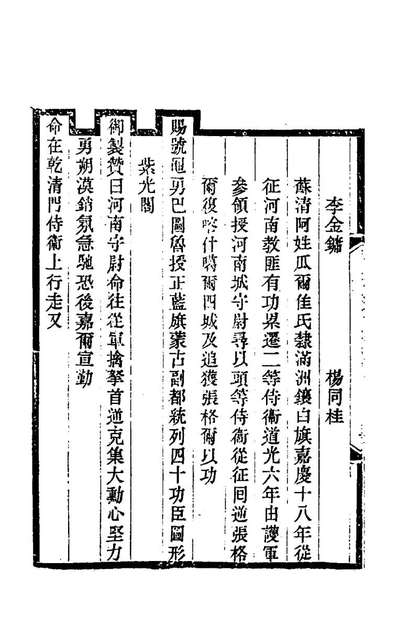 李金鏞　楊同桂
蘇清阿姓瓜爾佳氏隸滿洲鑲白旗嘉慶十八年從
征河南教匪有功累遷二等侍衛道光六年由護軍
參領授河南城守尉尋以頭等侍衛從征回逆張格
爾復喀什噶爾四城及追獲張格爾以功
賜號勇巴圖魯授正藍旗蒙古副都統列四十功臣圖形
紫光閣
御製贊曰河南守尉命往從軍擒拏首逆克集大勳心堅力
勇朔漠銷氛急馳恐後嘉爾宣勤
命在乾清門侍衛上行走又